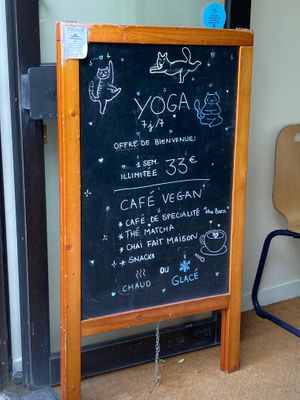 YOGA
7j/7
OFFRE DE BIENVENUE:
1 SEM. ILLIMITÉE 33€
CAFÉ VEGAN
* CAFÉ DE SPÉCIALITÉ
* THÉ MATCHA
* CHAÏ FAIT MAISON
* SNACKS
CHAUD OU GLACÉ